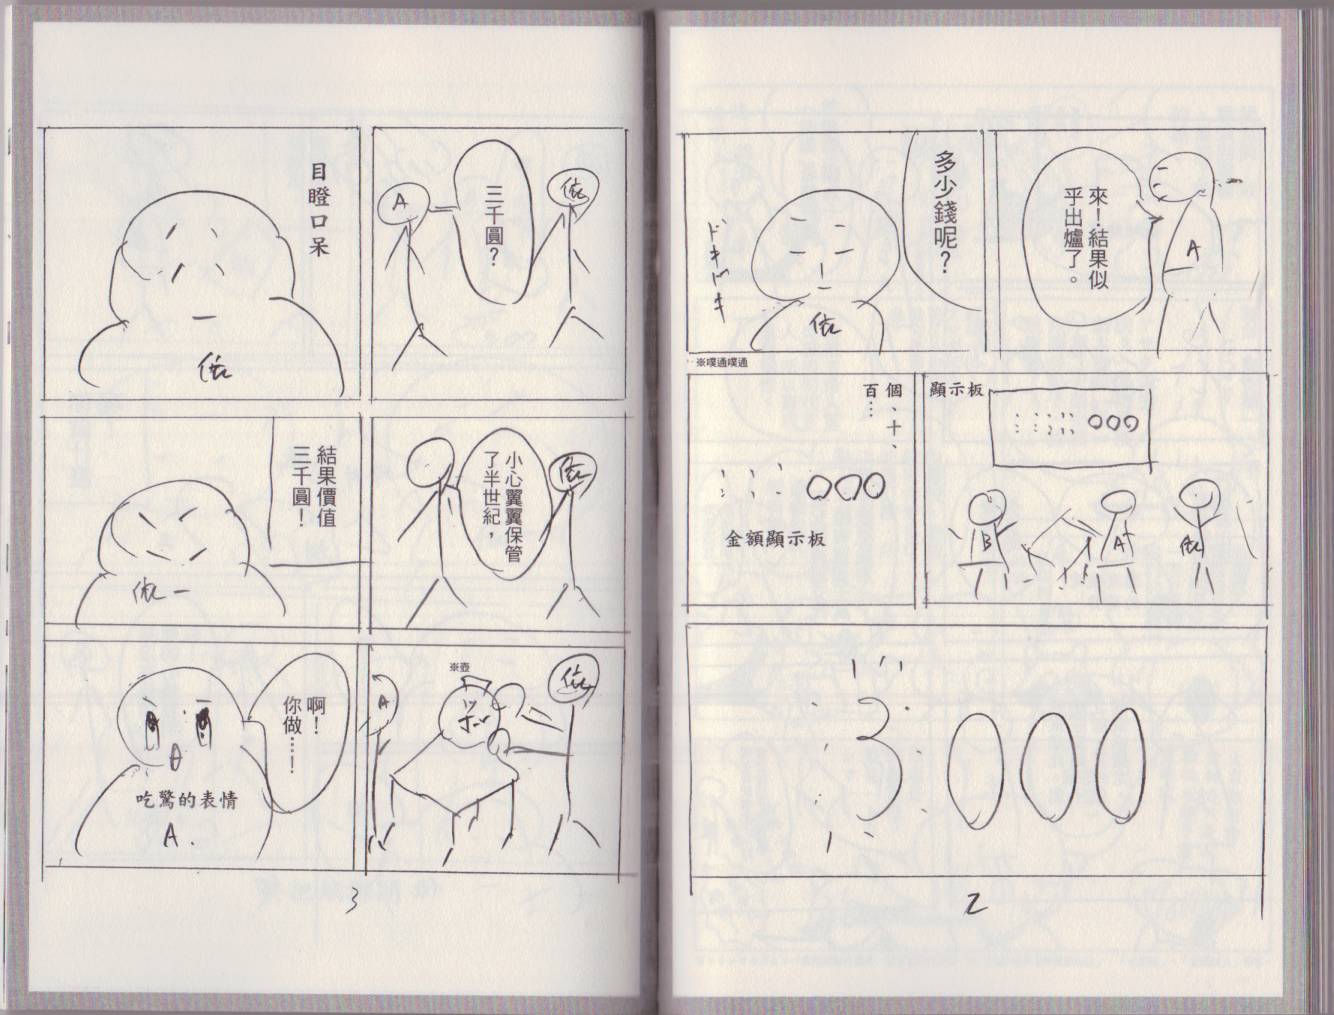 來！結果似
乎出爐了。
A
多少錢呢？
ドキドキ
依
※噗通噗通
顯示板
○○○
B
A
依
個、十、
百…
○○○
金額顯示板
3000
2
三千圓？
依
A
目瞪口呆
依
小心翼翼保管
了半世紀，
依
結果價值
三千圓！
依
※壺
ツボ
依
A
啊！
你做……！
吃驚的表情
A.
3